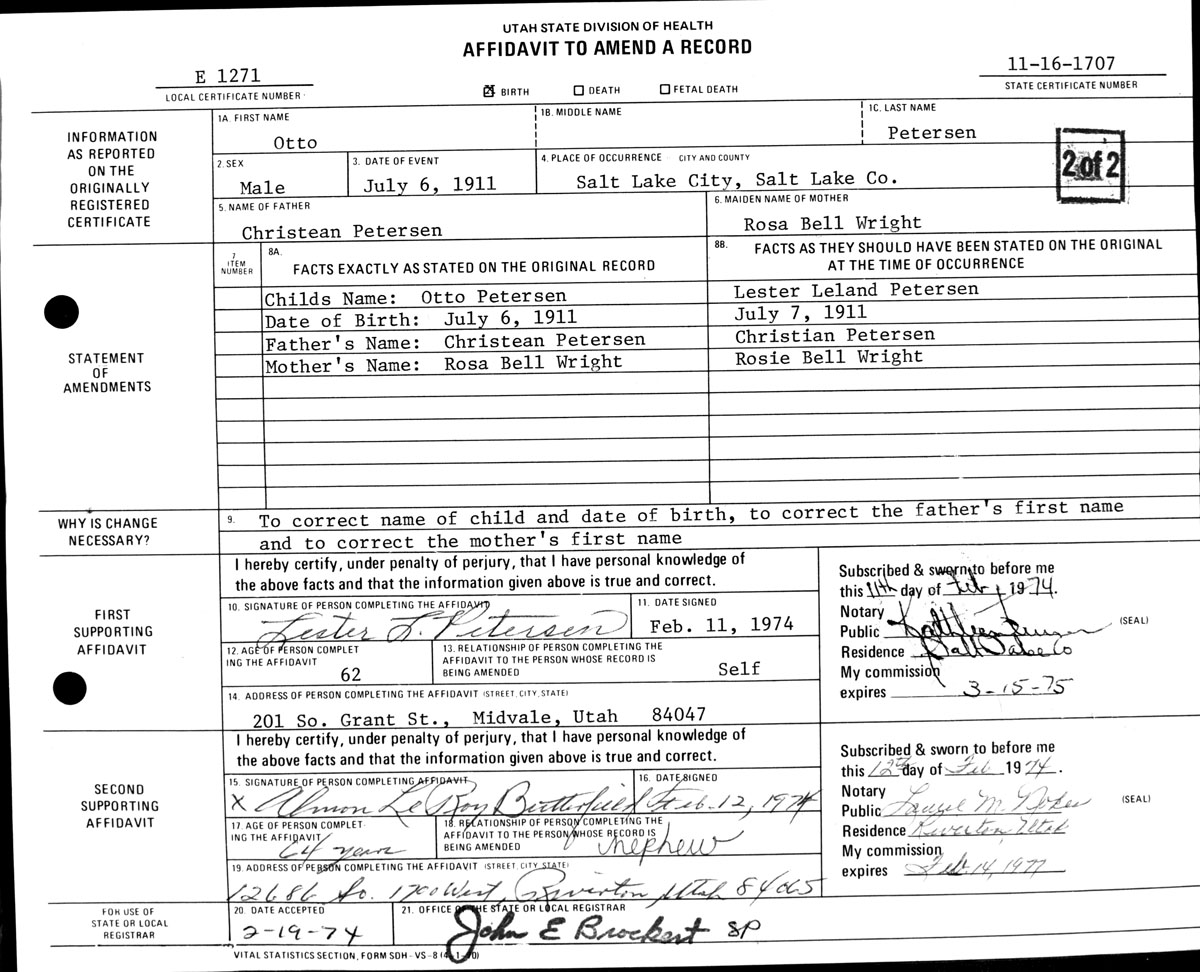 UTAH STATE DIVISION OF HEALTH
AFFIDAVIT TO AMEND A RECORD
E 1271
LOCAL CERTIFICATE NUMBER
BIRTH DEATH FETAL DEATH
11-16-1707
STATE CERTIFICATE NUMBER
INFORMATION
AS REPORTED
ON THE
ORIGINALLY
REGISTERED
CERTIFICATE
1A. FIRST NAME
Otto
1B. MIDDLE NAME
1C. LAST NAME
Petersen
2 of 2
2. SEX
Male
3. DATE OF EVENT
July 6, 1911
4. PLACE OF OCCURRENCE CITY AND COUNTY
Salt Lake City, Salt Lake Co.
5. NAME OF FATHER
Christean Petersen
6. MAIDEN NAME OF MOTHER
Rosa Bell Wright
STATEMENT
OF
AMENDMENTS
7
ITEM
NUMBER
8A.
FACTS EXACTLY AS STATED ON THE ORIGINAL RECORD
8B.
FACTS AS THEY SHOULD HAVE BEEN STATED ON THE ORIGINAL
AT THE TIME OF OCCURRENCE
Childs Name: Otto Petersen
Lester Leland Petersen
Date of Birth: July 6, 1911
July 7, 1911
Father's Name: Christean Petersen
Christian Petersen
Mother's Name: Rosa Bell Wright
Rosie Bell Wright
WHY IS CHANGE
NECESSARY?
9. To correct name of child and date of birth, to correct the father's first name
and to correct the mother's first name
FIRST
SUPPORTING
AFFIDAVIT
I hereby certify, under penalty of perjury, that I have personal knowledge of
the above facts and that the information given above is true and correct.
10. SIGNATURE OF PERSON COMPLETING THE AFFIDAVIT
Lester L. Petersen
11. DATE SIGNED
Feb. 11, 1974
12. AGE OF PERSON COMPLET
ING THE AFFIDAVIT
62
13. RELATIONSHIP OF PERSON COMPLETING THE
AFFIDAVIT TO THE PERSON WHOSE RECORD IS
BEING AMENDED
Self
14. ADDRESS OF PERSON COMPLETING THE AFFIDAVIT (STREET, CITY, STATE)
201 So. Grant St., Midvale, Utah 84047
Subscribed & sworn to before me
this 11th day of Feb, 1974.
Notary
Public Kathleen
(SEAL)
Residence Salt Lake Co
My commission
expires 3-15-75
SECOND
SUPPORTING
AFFIDAVIT
I hereby certify, under penalty of perjury, that I have personal knowledge of
the above facts and that the information given above is true and correct.
15. SIGNATURE OF PERSON COMPLETING AFFIDAVIT
X Almon Le Roy Butterfield
16. DATE SIGNED
Feb. 12, 1974
17. AGE OF PERSON COMPLET
ING THE AFFIDAVIT
64 years
18. RELATIONSHIP OF PERSON COMPLETING THE
AFFIDAVIT TO THE PERSON WHOSE RECORD IS
BEING AMENDED
nephew
19. ADDRESS OF PERSON COMPLETING THE AFFIDAVIT (STREET, CITY STATE)
12686 So. 1700 West, Riverton, Utah 84065
Subscribed & sworn to before me
this 12th day of Feb 1974.
Notary
Public M.
(SEAL)
Residence Riverton, Utah
My commission
expires Feb. 14, 1977
FOR USE OF
STATE OR LOCAL
REGISTRAR
20. DATE ACCEPTED
2-19-74
21. OFFICE OF THE STATE OR LOCAL REGISTRAR
John E Brockert SP
VITAL STATISTICS SECTION, FORM SDH-VS-8